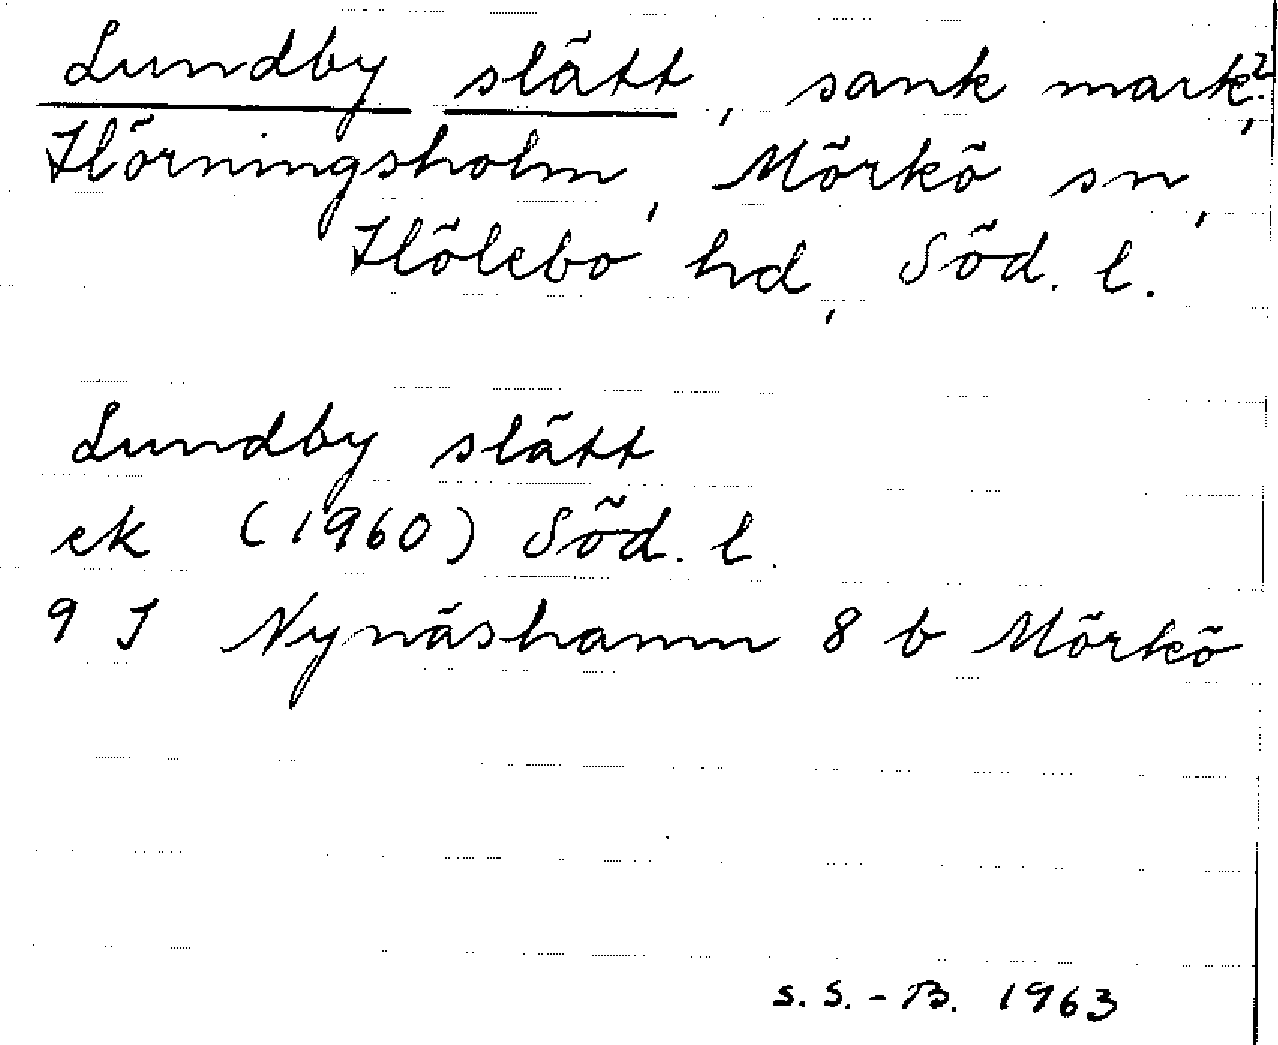 Lundby slätt, sank mark?,
Hörningsholm, Mörkö sn,
Hölebo hd, Söd. l.
Lundby slätt
ek (1960) Söd. l.
9 I Nynäshamn 8 b Mörkö
S. S.-B. 1963